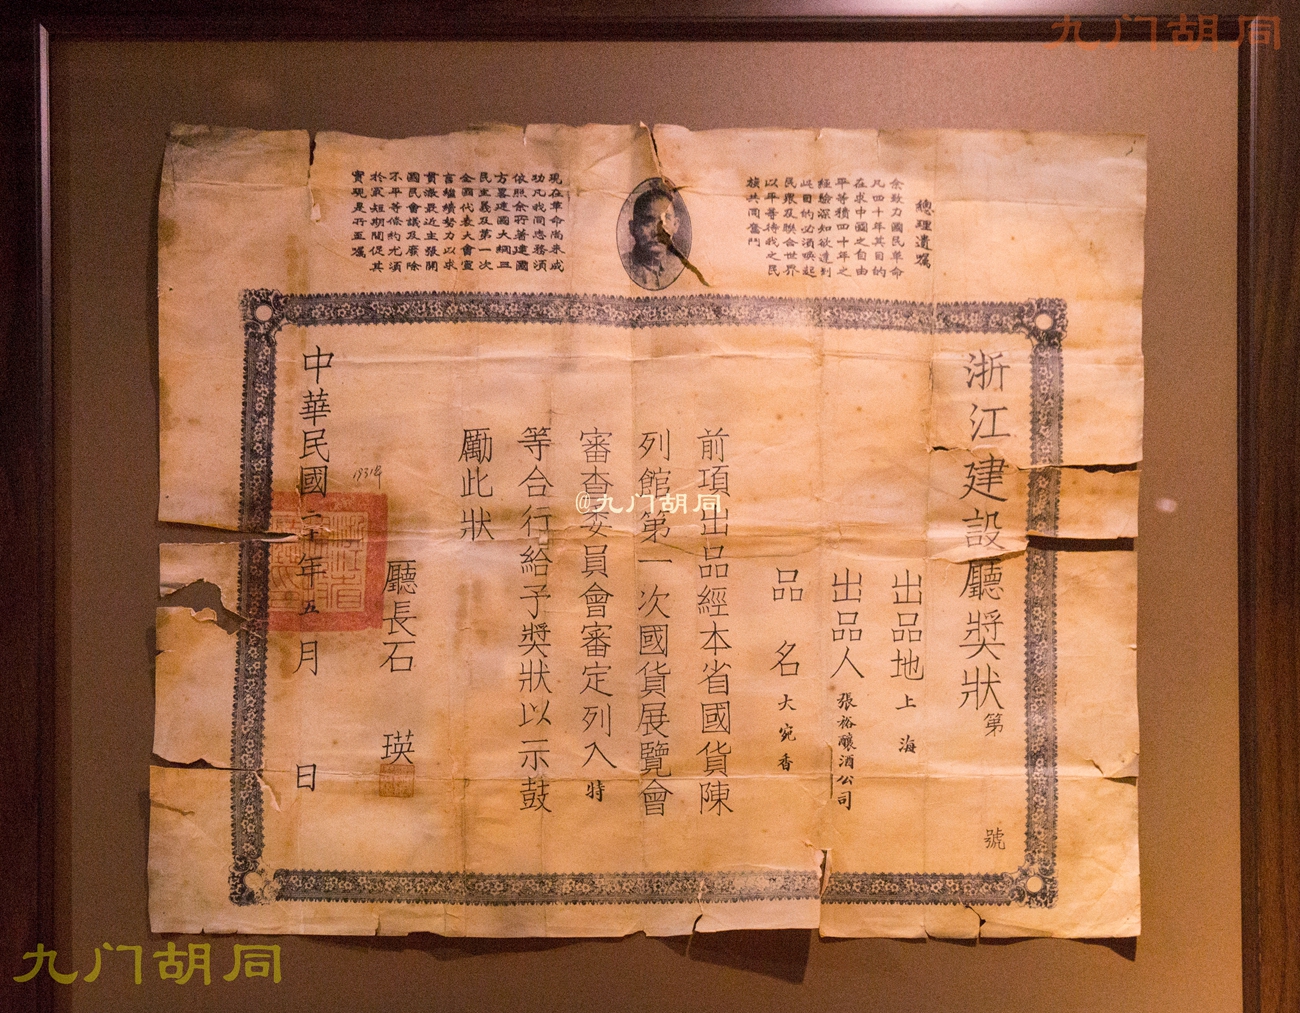 九门胡同
總理遺囑
余致力國民革命
凡四十年其目的
在求中國之自由
平等積四十年之
經驗深知欲達到
此目的必須喚起
民眾及聯合世界
以平等待我之民
族共同奮鬥
現在革命尚未成
功凡我同志務須
依照余所著建國
方畧建國大綱三
民主義及第一次
全國代表大會宣
言繼續努力以求
貫澈最近主張開
國民會議及廢除
不平等條約尤須
於最短期間促其
實現是所至囑
浙江建設廳獎狀第 號
出品地上海
出品人張裕釀酒公司
品名大宛香
前項出品經本省國貨陳
列館第一次國貨展覽會
審查委員會審定列入特
等合行給予獎狀以示鼓
勵此狀
廳長石瑛
1931年
中華民國二十年五月 日
@九门胡同
九门胡同